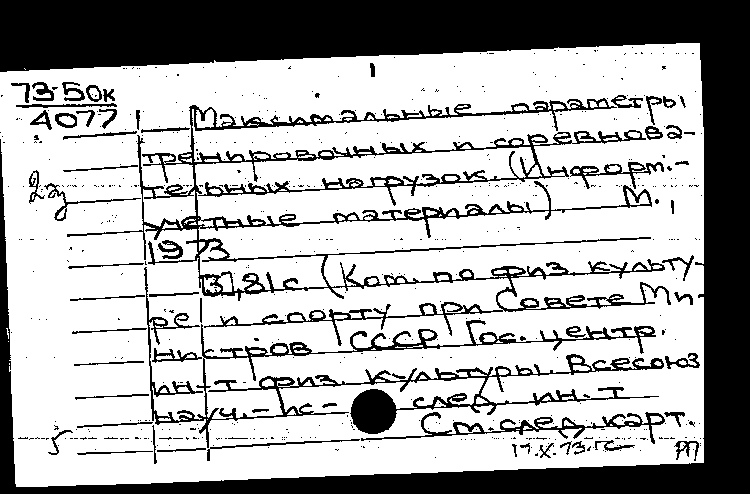 73-50к
4077
Максимальные параметры
тренировочных и соревнова-
2аз
тельных нагрузок. (Информ.-
учетные материалы). М.,
1973
[3],81с. (Ком. по физ. культу-
ре и спорту при Совете Ми-
нистров СССР. Гос. центр.
ин-т физ. культуры. Всесоюз
науч.-ис- след. ин-т
См.след.карт.
5
17.X.73.гс РП